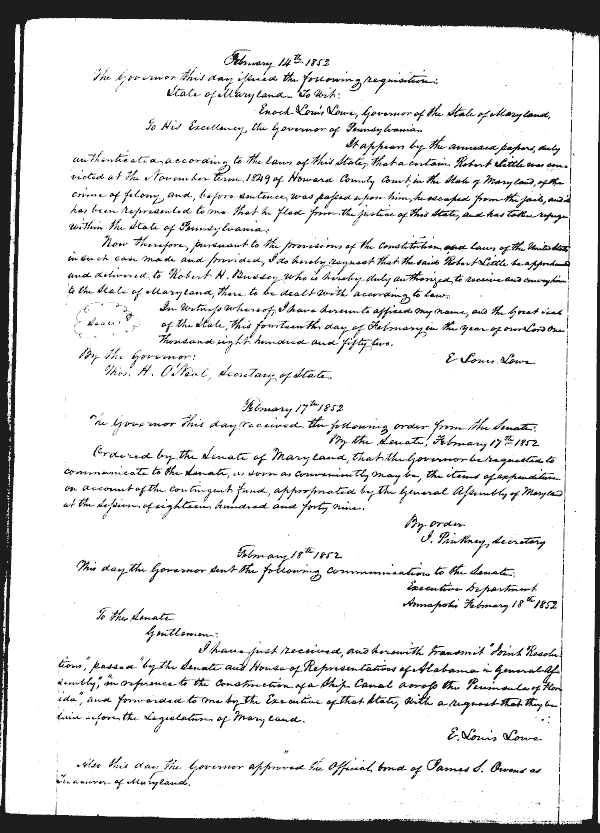 February 14th 1852
The Governor this day issued the following requisition:
State of Maryland. To Wit:
Enoch Louis Lowe, Governor of the State of Maryland,
To His Excellency, the Governor of Pennsylvania.
It appears by the annexed papers, duly
authenticated, according to the laws of this State, that a certain Robert Little was con-
victed at the November term, 1849 of Howard County Court, in the State of Maryland, of the
crime of felony, and, before sentence, was passed upon him, he escaped from the jail, and it
has been represented to me that he fled from the justice of this State, and has taken refuge
within the State of Pennsylvania.
Now therefore, pursuant to the provisions of the Constitution and laws of the United States
in such case made and provided, I do hereby request that the said Robert Little be apprehended
and delivered, to Robert H. Bussey who is hereby duly authorized, to receive and convey him
to the State of Maryland, there to be dealt with according to law.
In Witness whereof, I have hereunto affixed my name, and the Great Seal
of the State, this fourteenth day of February in the year of our Lord One
thousand eight hundred and fifty two.
Seal
By the Governor: E. Louis Lowe
Thos. H. O'Neal, Secretary of State.
February 17th 1852
The Governor this day received the following order from the Senate:
By the Senate, February 17th 1852
Ordered by the Senate of Maryland, that the Governor be requested to
communicate to the Senate, as soon as conveniently may be, the items of expenditure
on account of the contingent fund, appropriated by the General Assembly of Maryland
at the session of eighteen hundred and forty nine.
By order
J. Pinkney, Secretary
February 18th 1852
This day the Governor sent the following communication to the Senate:
Executive Department
Annapolis February 18th 1852
To the Senate
Gentlemen:
I have just received, and herewith transmit "Joint Resolu-
tions", passed "by the Senate and House of Representatives of Alabama in General As-
sembly", "in reference to the Construction of a Ship Canal across the Peninsula of Flor-
ida", and forwarded to me by the Executive of that State, with a request that they be
laid before the Legislature of Maryland.
E. Louis Lowe
Also this day the Governor approved the Official bond of James S. Owens as
Treasurer of Maryland.